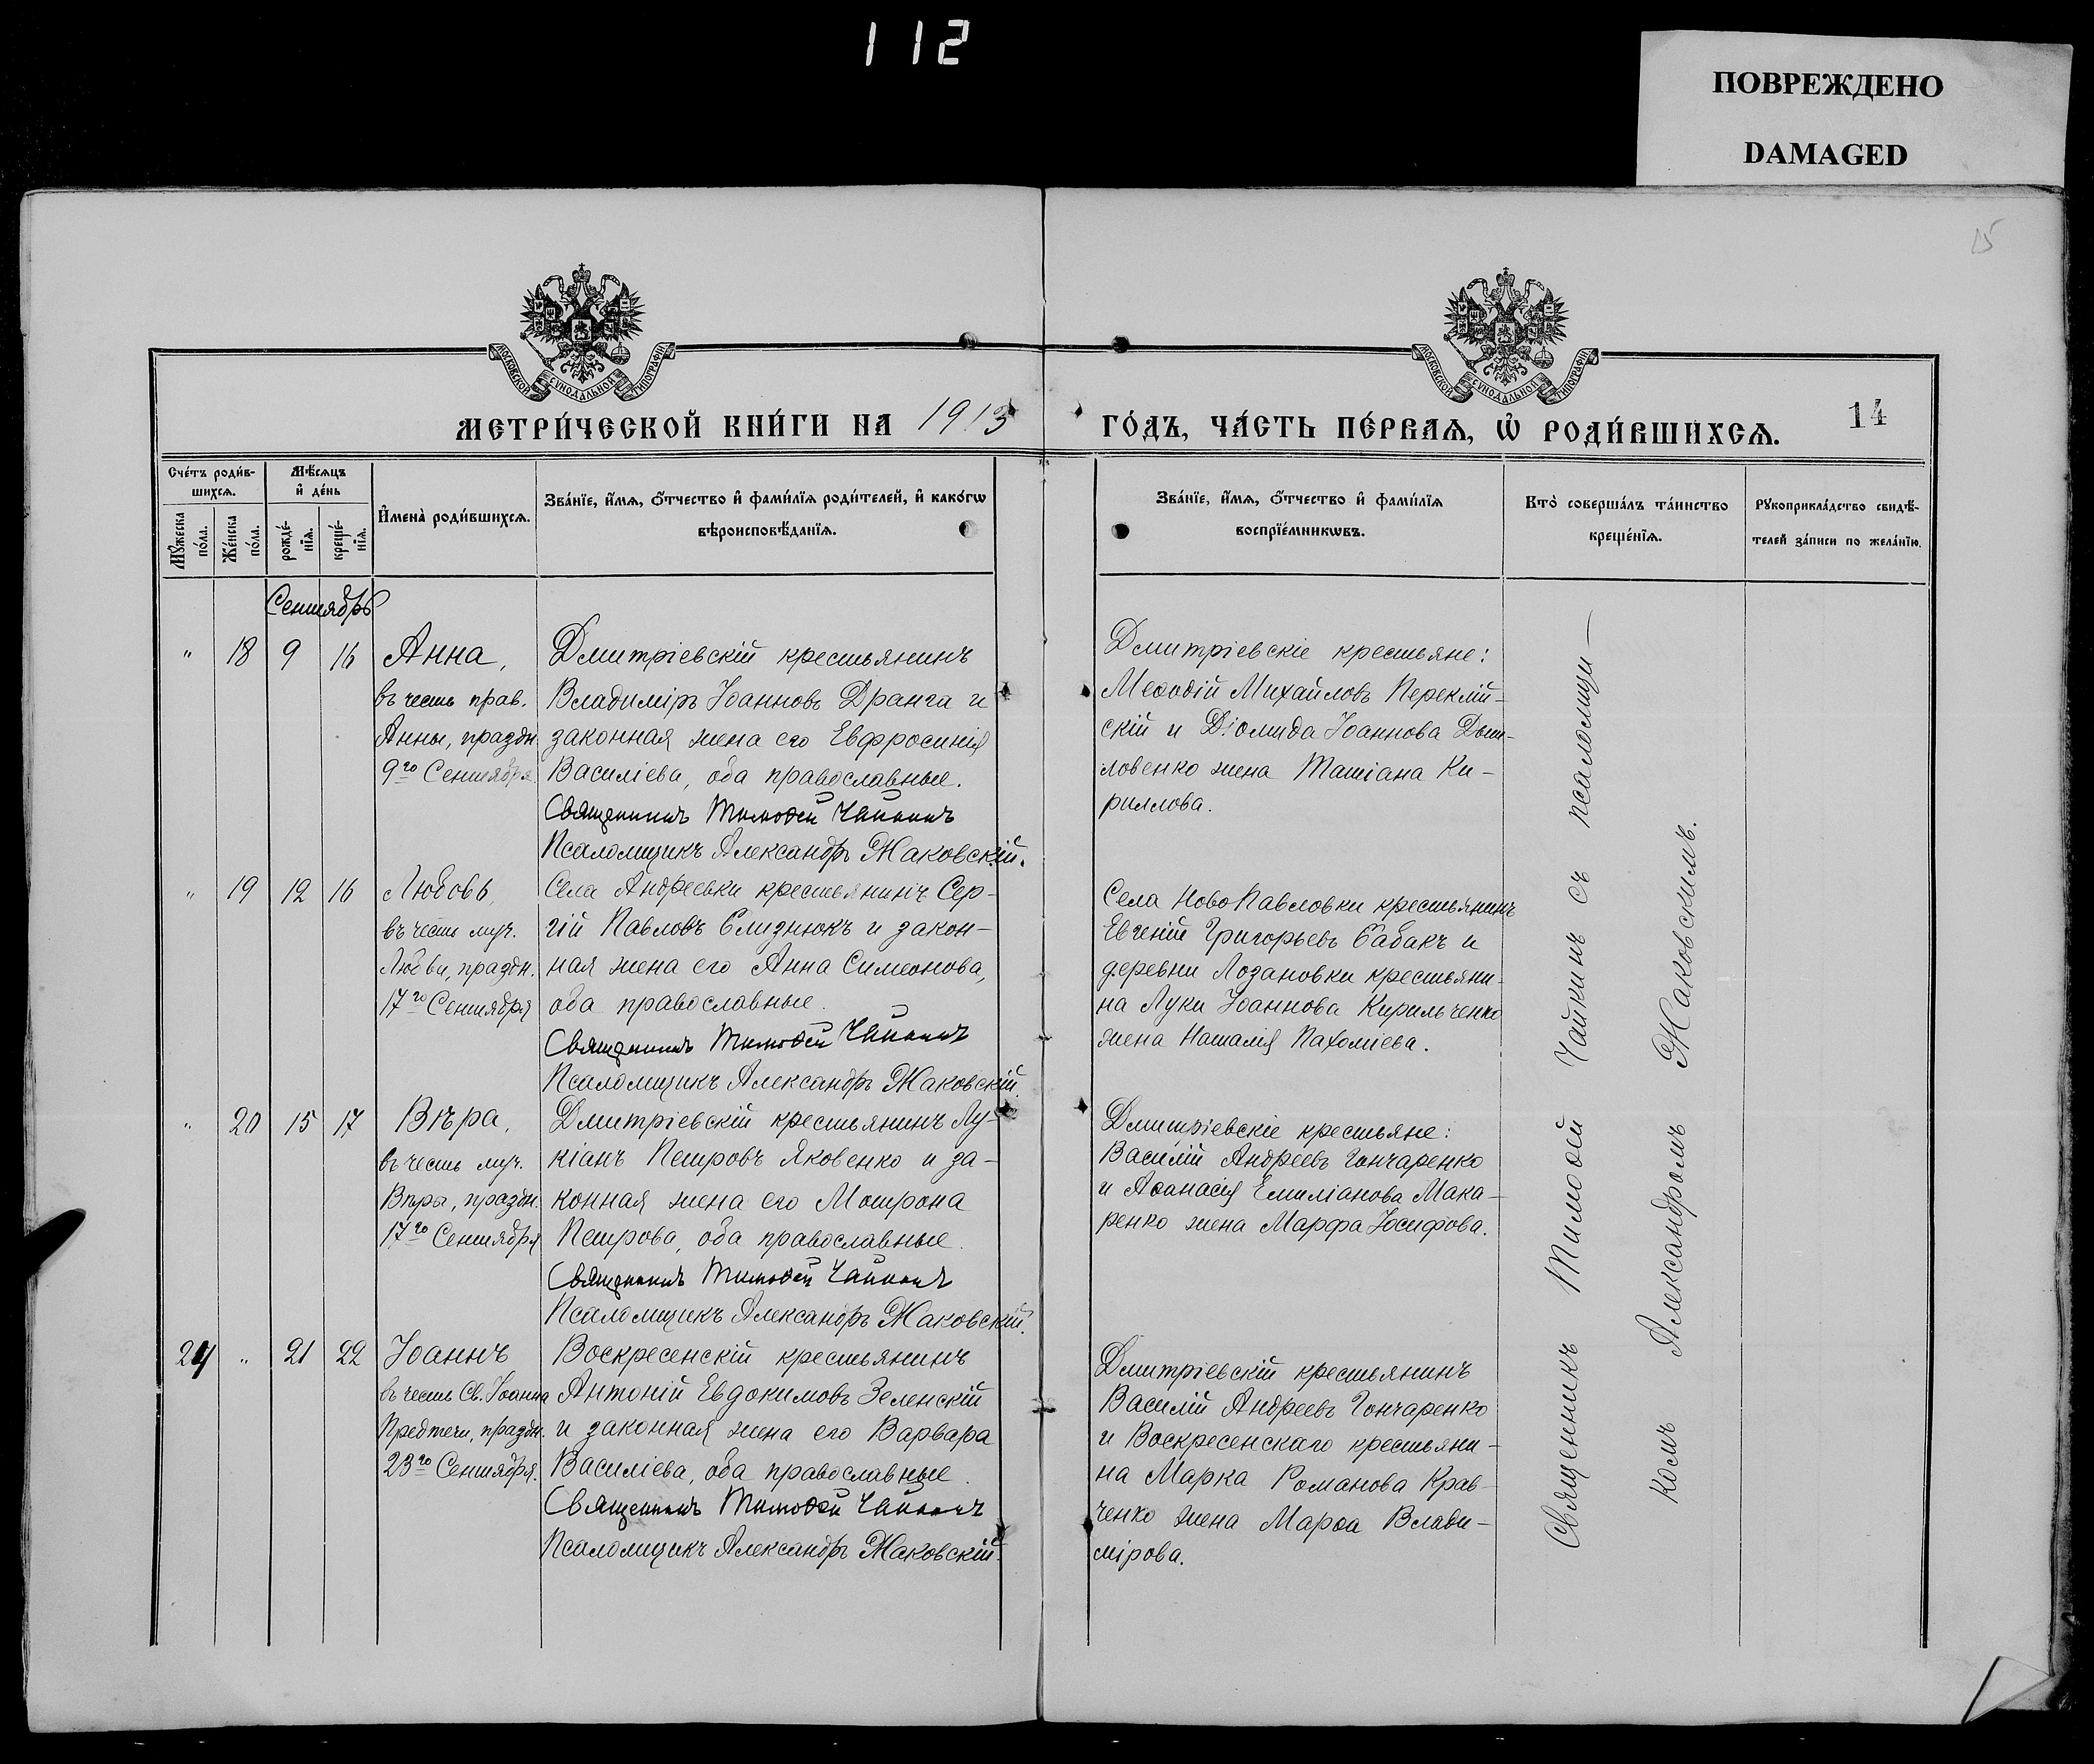 112
ПОВРЕЖДЕНО
DAMAGED
15
МОСКОВСКОЙ СѴНОДАЛЬНОЙ ТИПОГРАФІИ
МОСКОВСКОЙ СѴНОДАЛЬНОЙ ТИПОГРАФІИ
МЕТРИ́ЧЕСКОЙ КНИ́ГИ НА 1913
ГО́ДЪ, ЧА́СТЬ ПЕ́РВАѦ, Ѽ РОДИ́ВШИХСѦ.
14
Сче́тъ роди́в-
шихсѧ.
Мѣ́сѧцъ
и҆ де́нь
Мꙋ́жеска
по́ла.
Же́нска
по́ла.
рожде́-
нїѧ.
креще́-
нїѧ.
И҆мена̀ роди́вшихсѧ.
Зва́нїе, и҆́мѧ, ѻ҆́тчество и҆ фами́лїѧ роди́телей, и҆ како́гѡ
вѣроисповѣ́данїѧ.
Зва́нїе, и҆́мѧ, ѻ҆́тчество и҆ фами́лїѧ
воспрїе́мникѡвъ.
Кто̀ соверша́лъ та́инство
креще́нїѧ.
Рꙋкоприкла́дство свидѣ́-
телей за́писи по жела́нїю.
Сентябрь
" 18 9 16 Анна,
въ честь прав.
Анны, праздн.
9го Сентября
Дмитріевскій крестьянинъ
Владиміръ Іоанновъ Дранга и
законная жена его Евфросинія
Василіева, оба православные.
Священникъ Тимоѳей Чайкинъ
Псаломщикъ Александръ Жаковскій.
Дмитріевскіе крестьяне:
Меѳодій Михайловъ Переклій-
скій и Діомида Іоаннова Дыш-
ловенко жена Татіана Ки-
риллова.
" 19 12 16 Любовь,
въ честь муч.
Любви, праздн.
17го Сентября
Села Андреевки крестьянинъ Сер-
гій Павловъ Слизнюкъ и закон-
ная жена его Анна Симеонова,
оба православные.
Священникъ Тимоѳей Чайкинъ
Псаломщикъ Александръ Жаковскій.
Села НовоПавловки крестьянинъ
Евгеній Григорьевъ Сабакъ и
деревни Лозановки крестьяни-
на Луки Іоаннова Кирильченко
жена Наталія Пахоміева.
" 20 15 17 Вѣра,
въ честь муч.
Вѣры, праздн.
17го Сентября
Дмитріевскій крестьянинъ Лу-
кіанъ Петровъ Яковенко и за-
конная жена его Мотрона
Петрова, оба православные.
Священникъ Тимоѳей Чайкинъ
Псаломщикъ Александръ Жаковскій.
Дмитріевскіе крестьяне:
Василій Андреевъ Гончаренко
и Аѳанасія Емиліанова Мака-
ренко жена Марфа Іосифова.
24 " 21 22 Іоаннъ
въ честь Св. Іоанна
Предтечи, праздн.
23го Сентября.
Воскресенскій крестьянинъ
Антоній Евдокимовъ Зеленскій
и законная жена его Варвара
Василіева, оба православные.
Священникъ Тимоѳей Чайкинъ
Псаломщикъ Александръ Жаковскій.
Дмитріевскій крестьянинъ
Василій Андреевъ Гончаренко
и Воскресенскаго крестьяни-
на Марка Романова Крав-
ченко жена Марѳа Влади-
мірова.
Священникъ Тимоѳей Чайкинъ съ псаломщи-
комъ Александромъ Жаковскимъ.